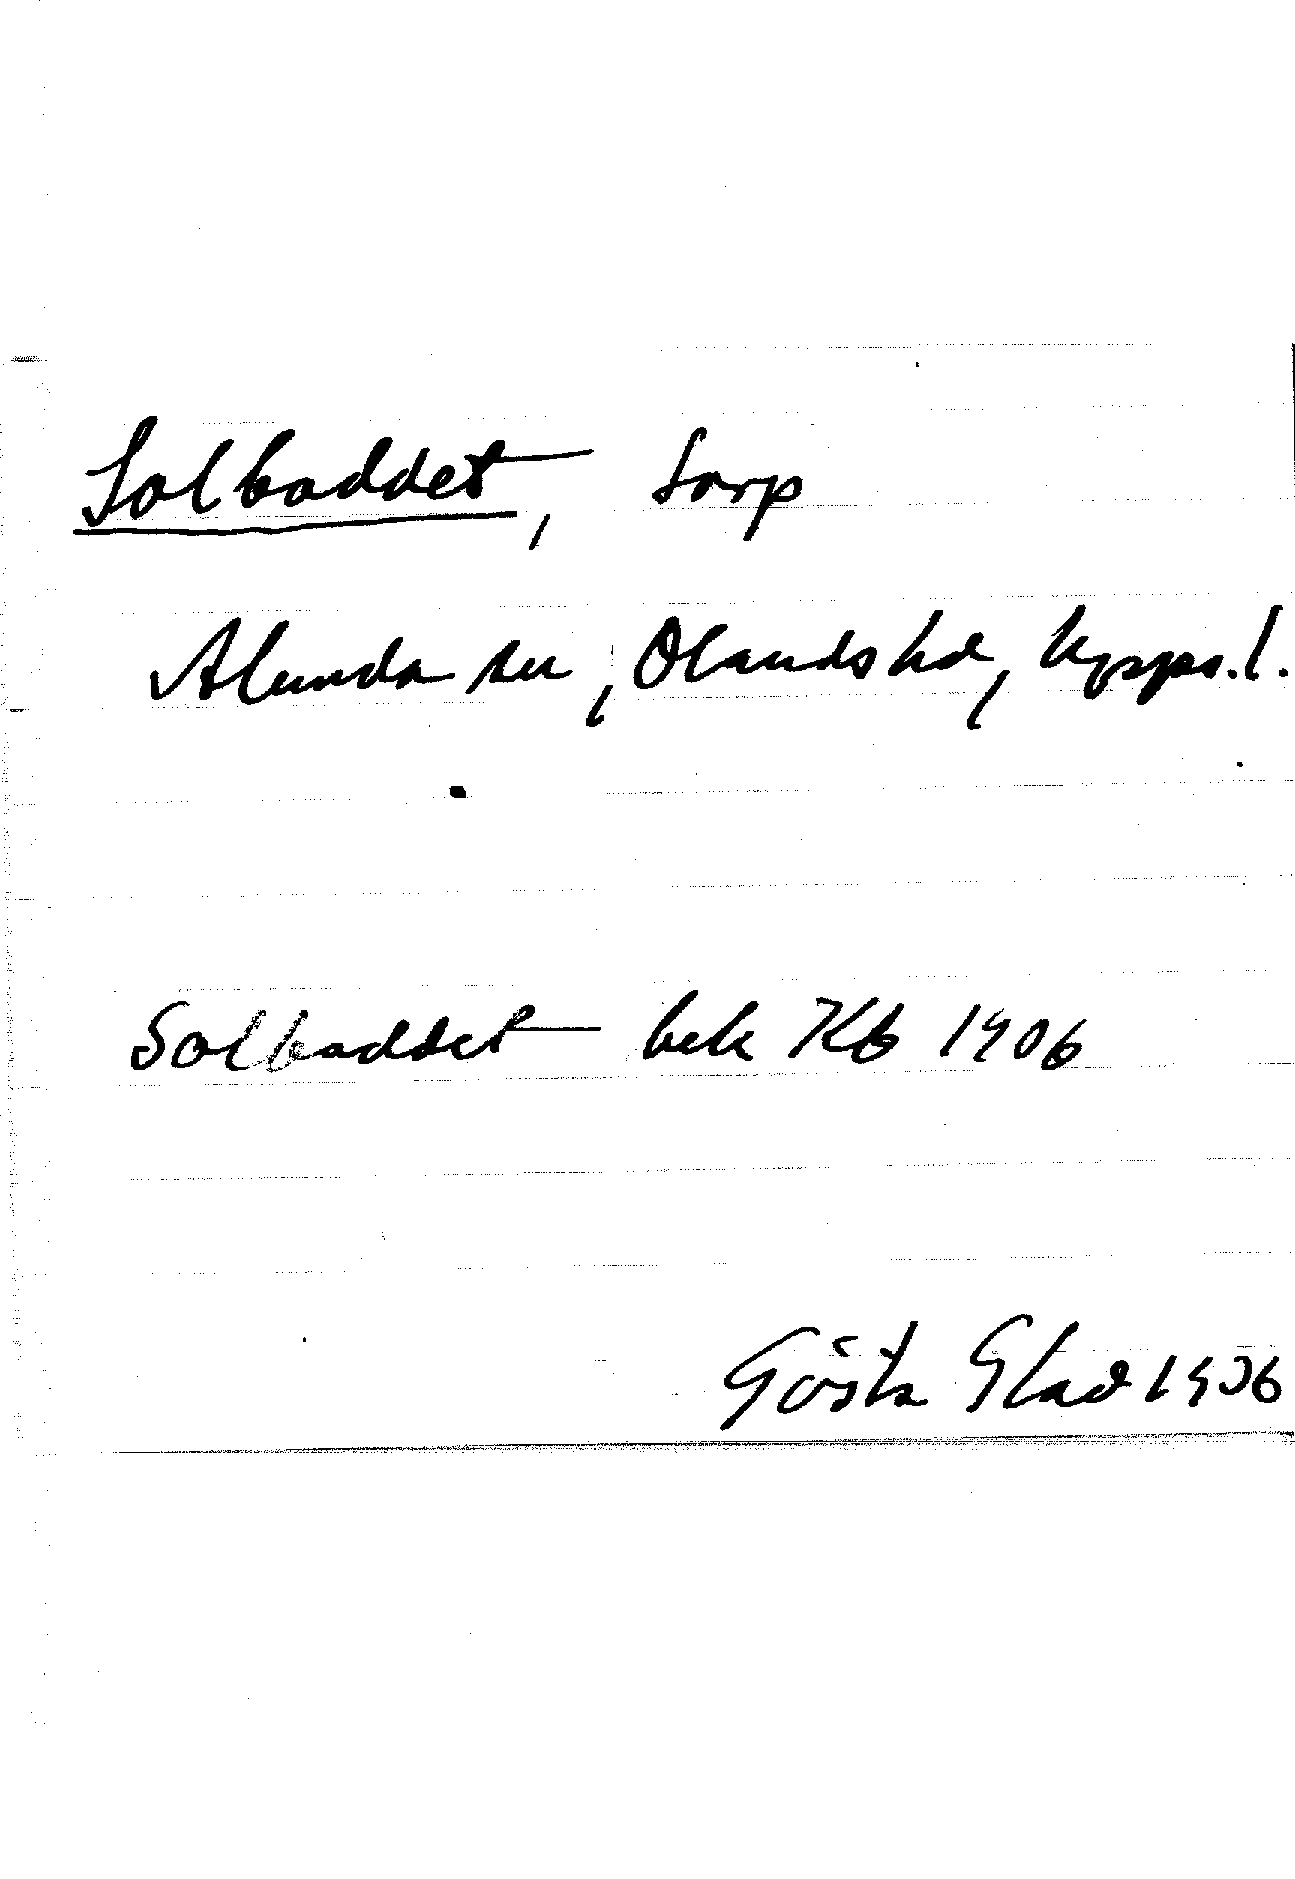 Solbaddet, torp
Alunda sn, Olands hd, Upps. l.
Solbaddet bek Kb 1906
Gösta Glad 1906